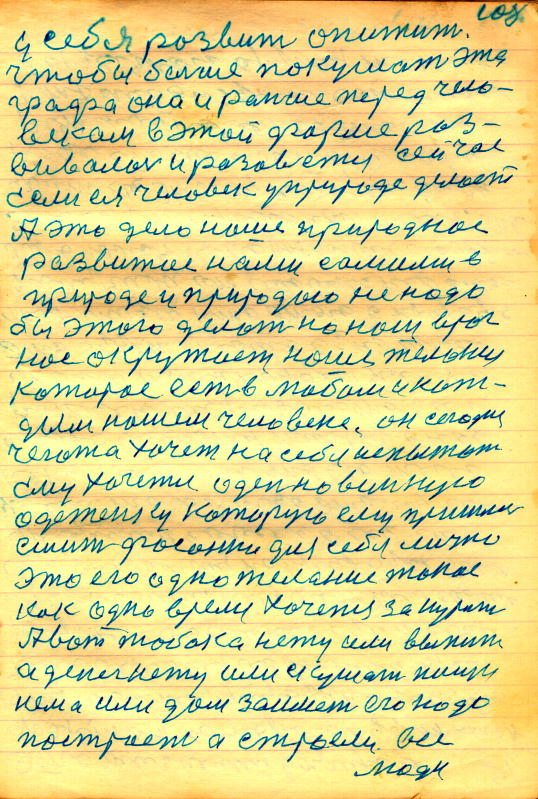 108
у себя розвит опитит.
чтобы болше покушат эта
графа она и ранше перед чело-
векам в этой форме раз-
вивалас и разавету сейчас
если ея человек уприроде делает
А это дело наше природнае
развитие нами самими в
природе и природыю не надо
бы этого делат но наш враг
нас окружает наше желание
которае ест в любом и каж-
дым нашем человеке. он сегодня
чегота хочет на себя испытат
ему хочется одет новинную
одеженку которую ему пришли
сшит фасонна для себя лично
это его одно желание такое
как одно время хочется закурит
А вот тобока нету или выпит
а денег нету или скушат пищи
нема или дом займет его надо
построет а строели все
люди